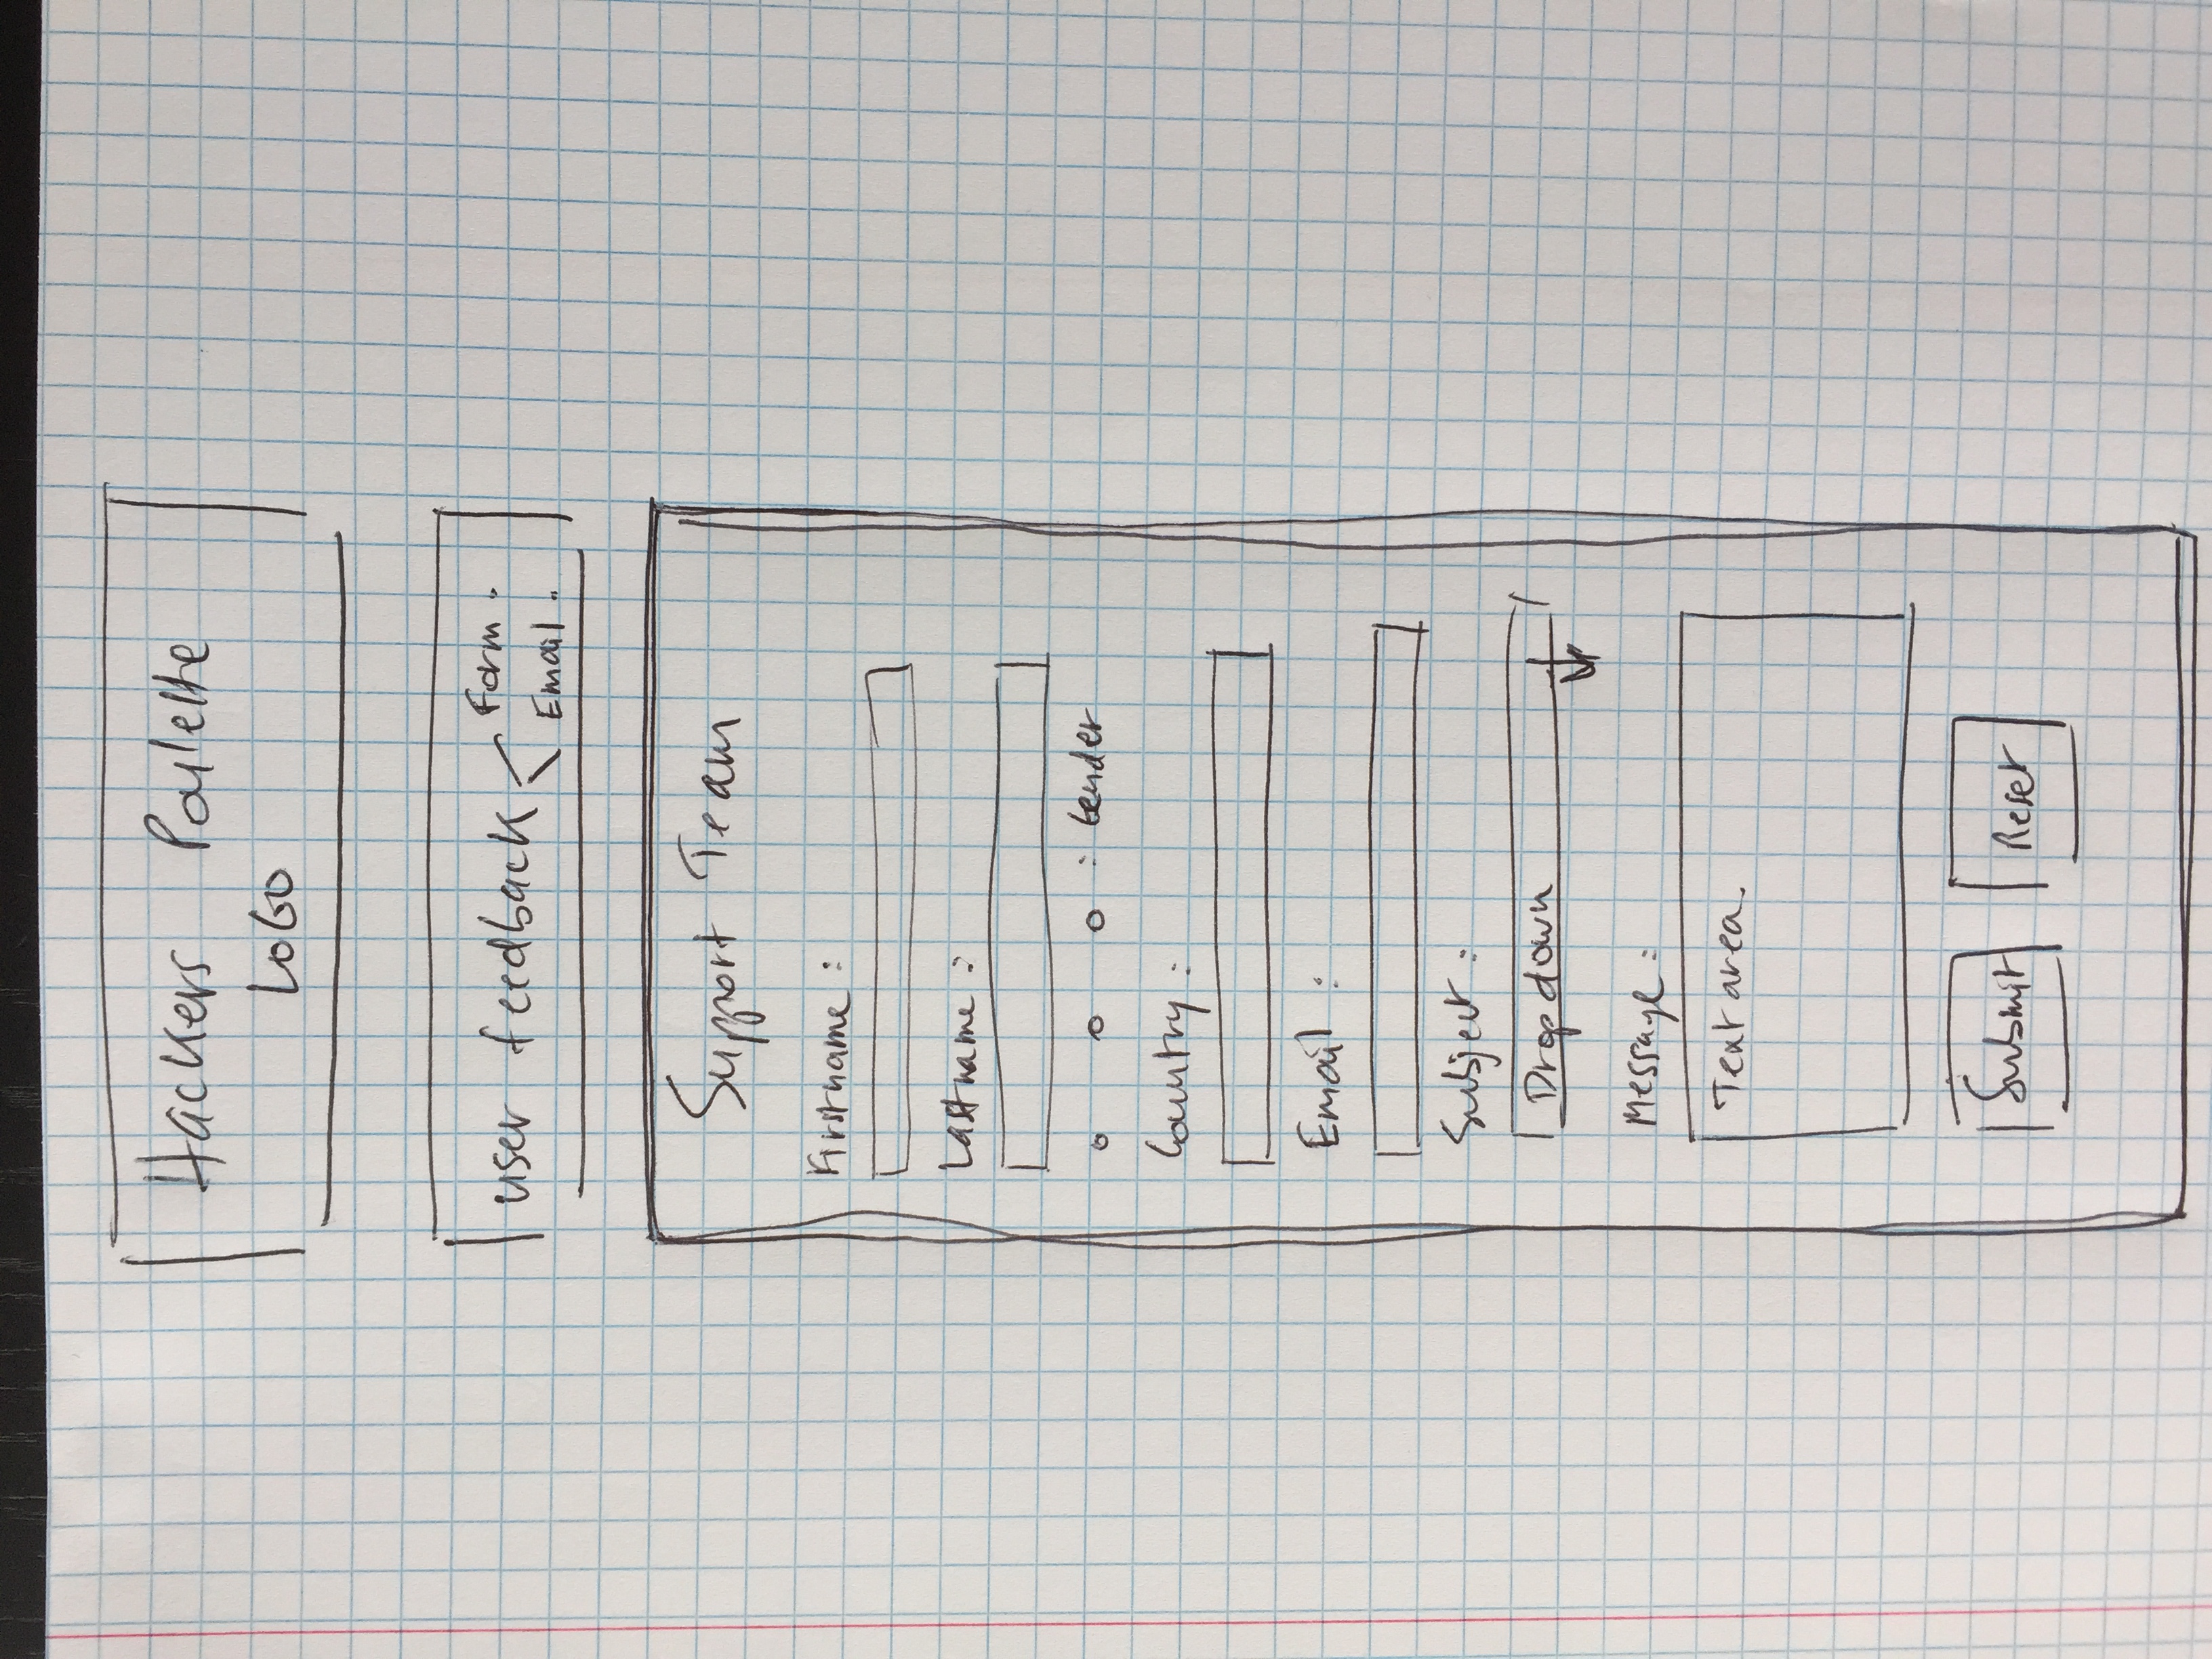 Hackers Poulette
LOGO
user feedback
Form.
Email.
Support Team
Firstname :
Lastname :
: Gender
Country :
Email :
Subject :
Dropdown
Message :
Textarea.
Submit
Reset